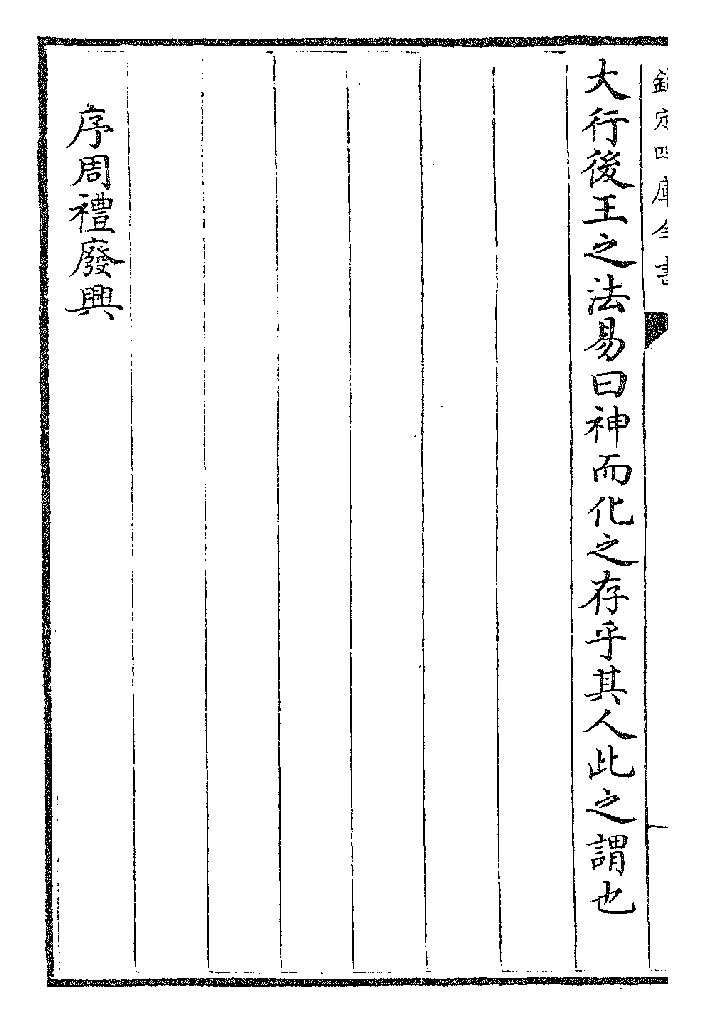 欽定四庫全書
大行後王之法易曰神而化之存乎其人此之謂也
序周禮廢興